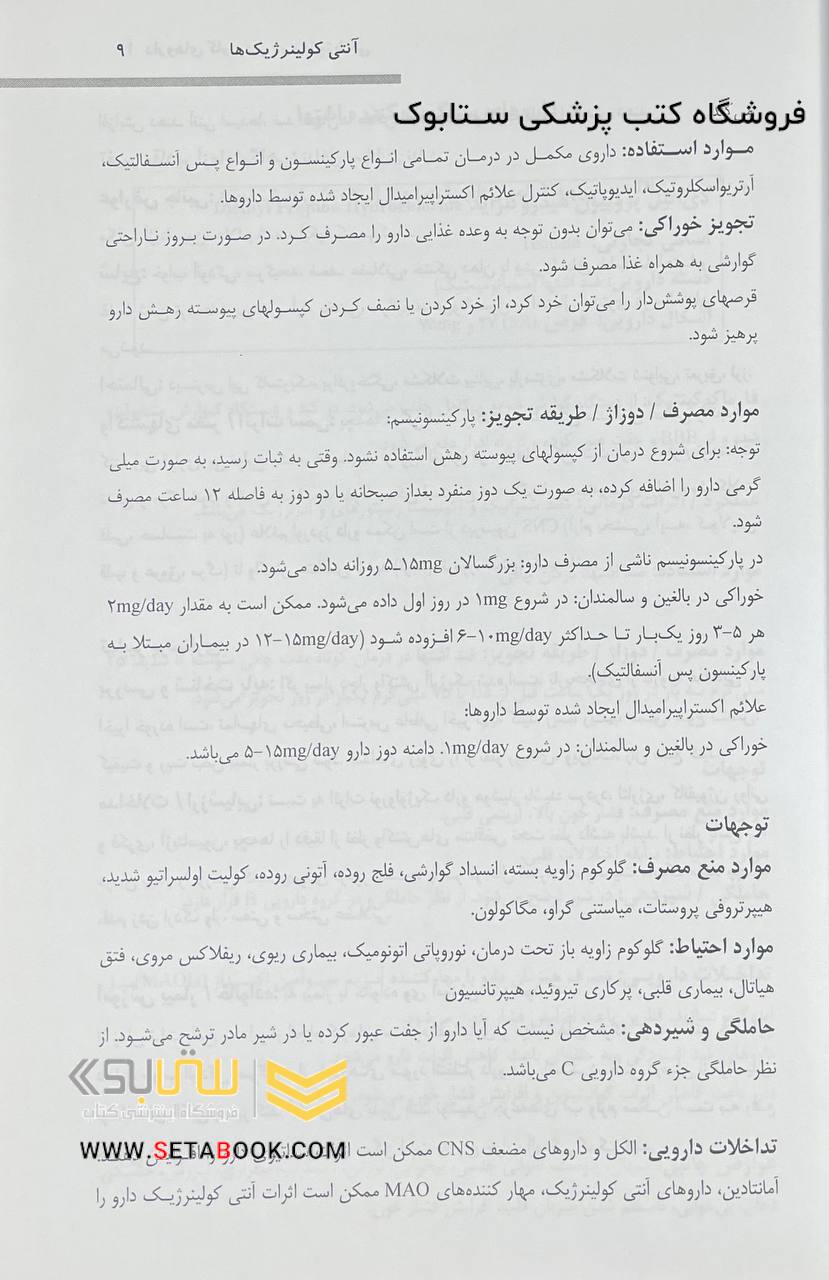 آنتی کولینرژیک‌ها ۹
فروشگاه کتب پزشکی ستابوک
موارد استفاده: داروی مکمل در درمان تمامی انواع پارکینسون و انواع پس آنسفالتیک،
آرتریواسکلروتیک، ایدیوپاتیک، کنترل علائم اکستراپیرامیدال ایجاد شده توسط داروها.
تجویز خوراکی: می‌توان بدون توجه به وعده غذایی دارو را مصرف کرد. در صورت بروز ناراحتی
گوارشی به همراه غذا مصرف شود.
قرصهای پوشش‌دار را می‌توان خرد کرد، از خرد کردن یا نصف کردن کپسولهای پیوسته رهش دارو
پرهیز شود.
موارد مصرف / دوزاژ / طریقه تجویز: پارکینسونیسم:
توجه: برای شروع درمان از کپسولهای پیوسته رهش استفاده نشود. وقتی به ثبات رسید، به صورت میلی
گرمی دارو را اضافه کرده، به صورت یک دوز منفرد بعداز صبحانه یا دو دوز به فاصله ۱۲ ساعت مصرف
شود.
در پارکینسونیسم ناشی از مصرف دارو: بزرگسالان ۵ـ۱۵mg روزانه داده می‌شود.
خوراکی در بالغین و سالمندان: در شروع ۱mg در روز اول داده می‌شود. ممکن است به مقدار ۲mg/day
هر ۵–۳ روز یک‌بار تا حداکثر ۶–۱۰mg/day افزوده شود (۱۲–۱۵mg/day در بیماران مبتلا به
پارکینسون پس آنسفالتیک).
علائم اکستراپیرامیدال ایجاد شده توسط داروها:
خوراکی در بالغین و سالمندان: در شروع ۱mg/day. دامنه دوز دارو ۵–۱۵mg/day می‌باشد.
توجهات
موارد منع مصرف: گلوکوم زاویه بسته، انسداد گوارشی، فلج روده، آتونی روده، کولیت اولسراتیو شدید،
هیپرتروفی پروستات، میاستنی گراو، مگاکولون.
موارد احتیاط: گلوکوم زاویه باز تحت درمان، نوروپاتی اتونومیک، بیماری ریوی، ریفلاکس مروی، فتق
هیاتال، بیماری قلبی، پرکاری تیروئید، هیپرتانسیون
حاملگی و شیردهی: مشخص نیست که آیا دارو از جفت عبور کرده یا در شیر مادر ترشح می‌شود. از
نظر حاملگی جزء گروه دارویی C می‌باشد.
ستابوک
فروشگاه اینترنتی کتاب
WWW.SETABOOK.COM
تداخلات دارویی: الکل و داروهای مضعف CNS ممکن است
آمانتادین، داروهای آنتی کولینرژیک، مهار کننده‌های MAO ممکن است اثرات آنتی کولینرژیک دارو را